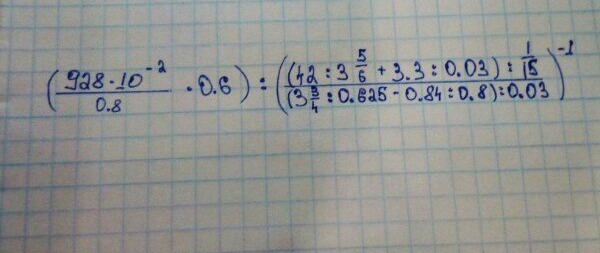 (928·10⁻²/0.8 · 0.6) : ((42 : 3 5/6 + 3.3 : 0.03) : 1/15 / (3 3/4 : 0.625 - 0.84 : 0.8) : 0.03)⁻¹